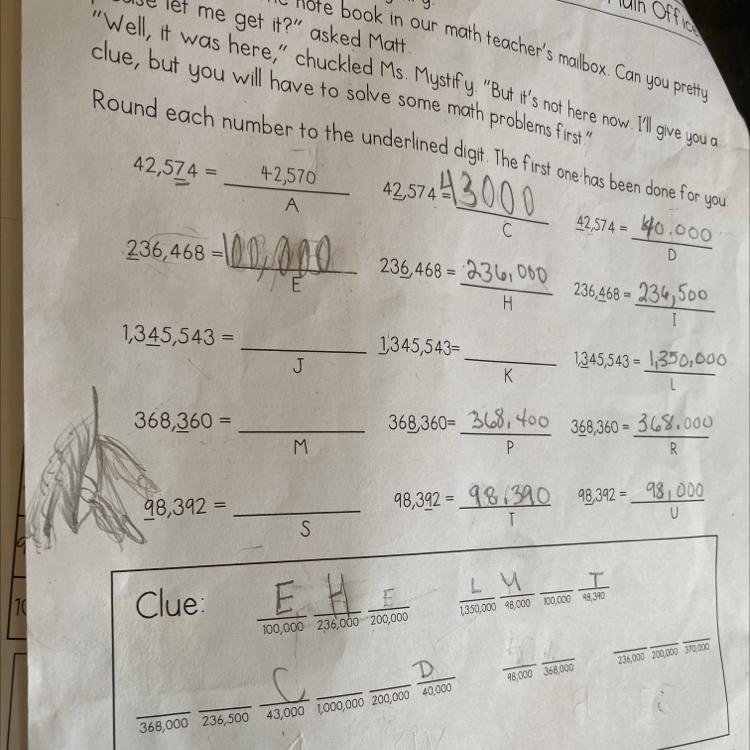 note book in our math teacher's mailbox. Can you pretty
let me get it?" asked Matt.
"Well, it was here," chuckled Ms. Mystify. "But it's not here now. I'll give you a
clue, but you will have to solve some math problems first."
Round each number to the underlined digit. The first one has been done for you.
42,574 = 42,570 42,574 = 43000 42,574 = 40.000
A C D
236,468 = 100,000 236,468 = 236,000 236,468 = 236,500
E H I
1,345,543 = 1,345,543= 1,345,543 = 1,350,000
J K L
368,360 = 368,360= 368,400 368,360 = 368.000
M P R
98,392 = 98,392 = 98,390 98,392 = 98,000
S T U
Clue: E H E L U T
100,000 236,000 200,000 1,350,000 98,000 100,000 98,390
C D
368,000 236,500 43,000 1,000,000 200,000 40,000 98,000 368,000 236,000 200,000 370,000